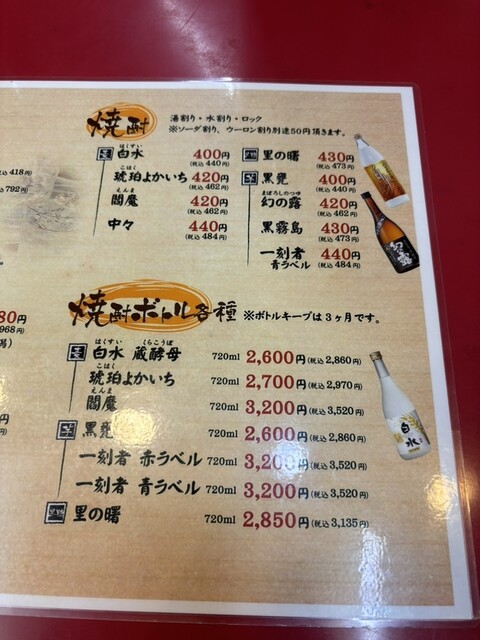 焼酎
湯割り・水割り・ロック
※ソーダ割り、ウーロン割り別途50円頂きます。
麦
はくすい
白水 400円
(税込 440円)
こはく
琥珀よかいち 420円
(税込 462円)
えんま
閻魔 420円
(税込 462円)
中々 440円
(税込 484円)
里の曙 430円
(税込 473円)
黒甕 400円
(税込 440円)
まぼろしのつゆ
幻の露 420円
(税込 462円)
黒霧島 430円
(税込 473円)
一刻者 440円
青ラベル (税込 484円)
税込 418円)
税込 792円)
80円
968円)
焼酎ボトル各種 ※ボトルキープは3ヶ月です。
麦
はくすい くらこうぼ
白水 蔵酵母 720ml 2,600円(税込 2,860円)
こはく
琥珀よかいち 720ml 2,700円(税込 2,970円)
えんま
閻魔 720ml 3,200円(税込 3,520円)
黒甕 720ml 2,600円(税込 2,860円)
一刻者 赤ラベル 720ml 3,200円(税込 3,520円)
一刻者 青ラベル 720ml 3,200円(税込 3,520円)
里の曙 720ml 2,850円(税込 3,135円)
幻露
白水